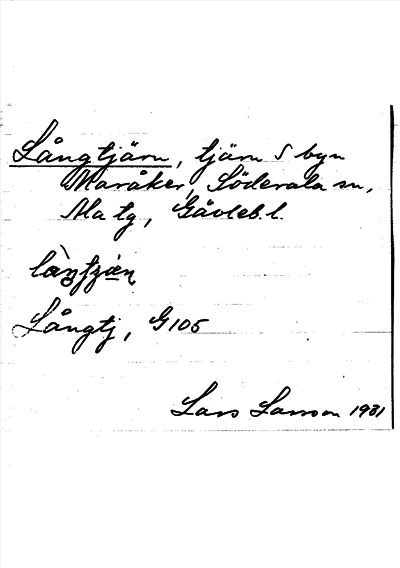 Långtjärn, tjärn S byn
Maråker, Söderala sn,
Ala tg, Gävleb. l.
Långtj, G105
Lars Larsson 1931